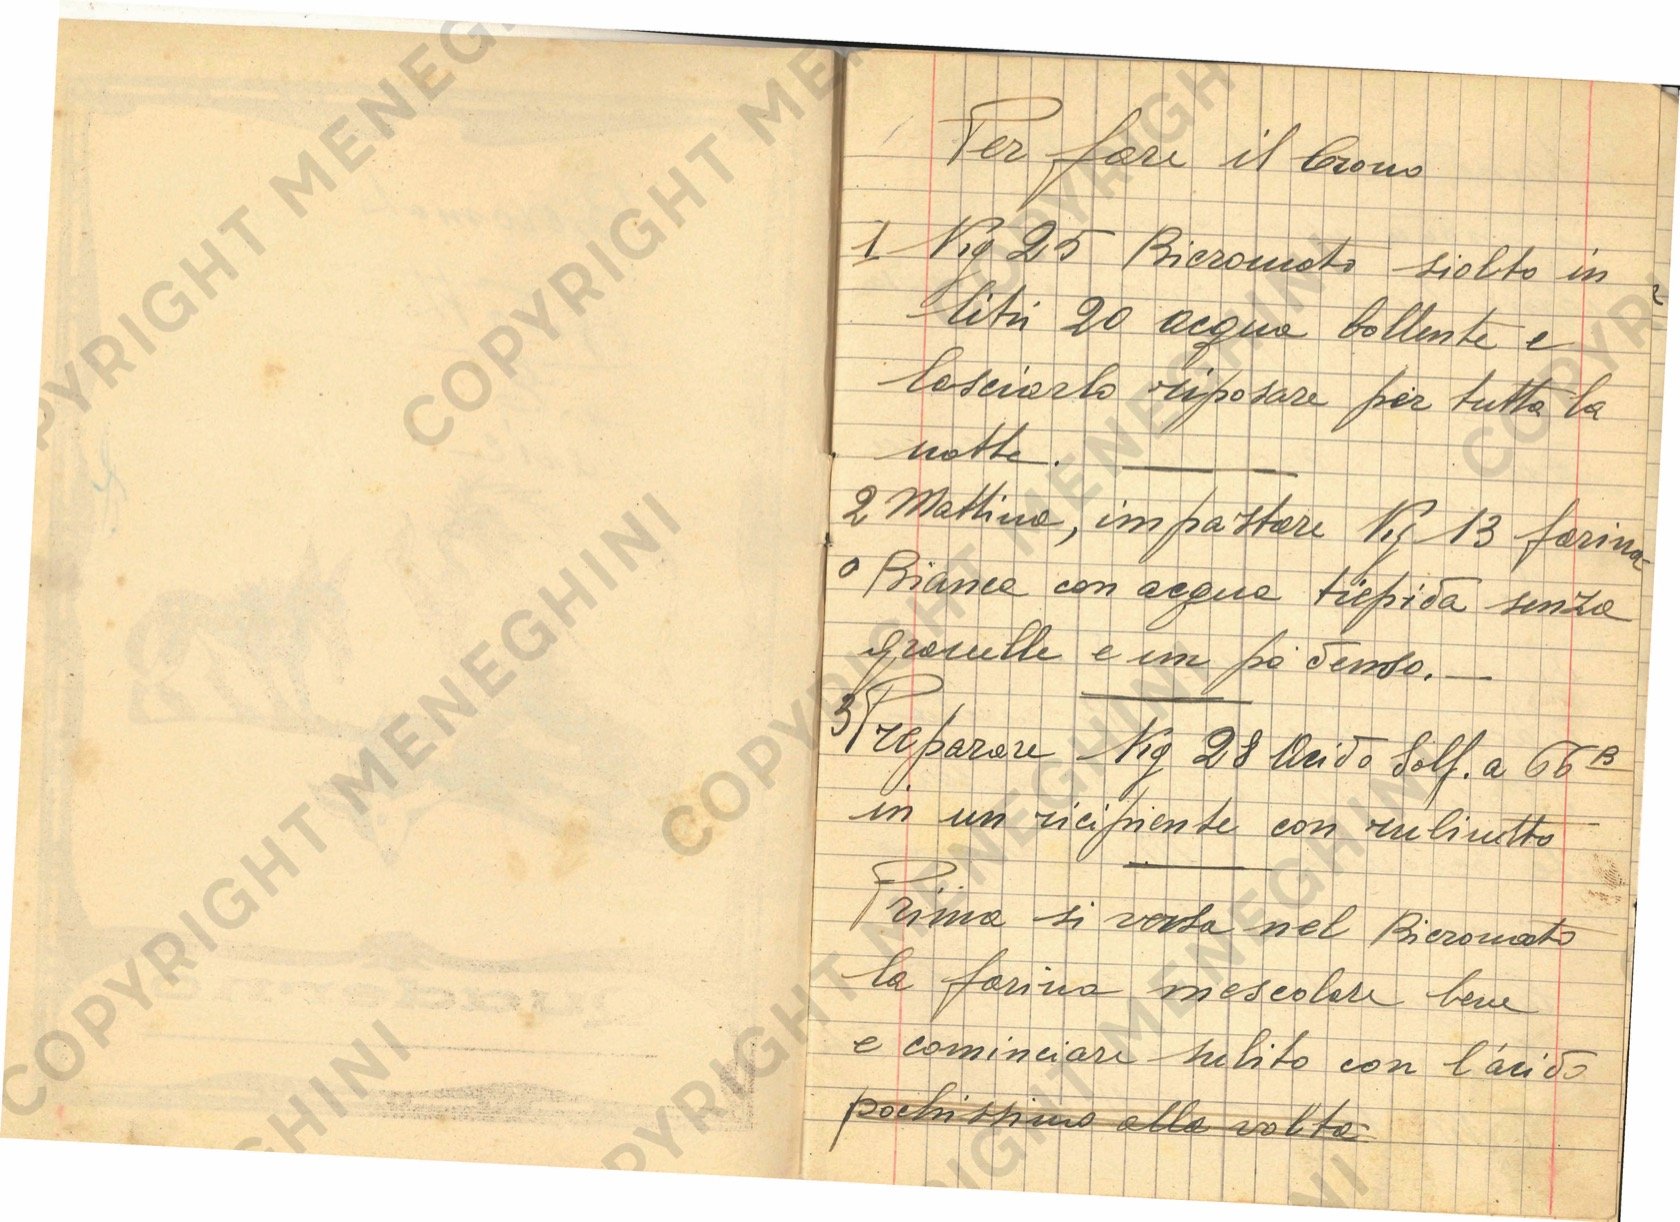 Per fare il Cromo
1 Kg 25 Bicromato siolto in
litri 20 acqua bollente e
lasciarlo riposare per tutta la
notte.
2 Mattina, impastare Kg 13 farina
0 Bianca con acqua tiepida senza
granelle e un pò denso.
3 Preparare Kg 28 Acido Solf. a 66 B
in un ricipiente con rubinetto
Prima si versa nel Bicromato
la farina mescolare bene
e cominciare subito con l'acido
pochissimo alla volta
COPYRIGHT MENEGHINI